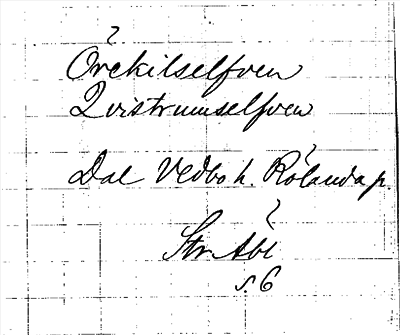 Örekilselfven
Qvistrumselfven
Dal Vedbo h. Rölanda p.
Str. Åbl
s. 6